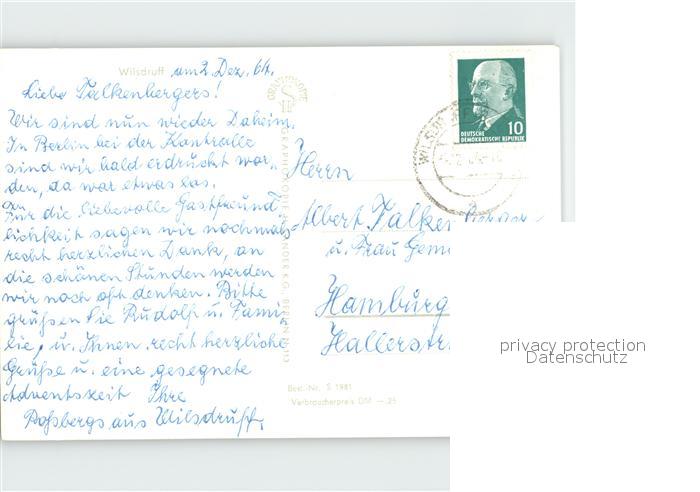 Wilsdruff am 2. Dez. 64.
Liebe Falkenbergers!
Wir sind nun wieder Daheim.
In Berlin bei der Kontrolle
sind wir bald erdrückt wor-
den, da war etwas los.
Für die liebevolle Gastfreund
lichkeit sagen wir nochmals
recht herzlichen Dank, an
die schönen Stunden werden
wir noch oft denken. Bitte
grüßen Sie Rudolf u. Fami
lie, u. Ihnen recht herzliche
Grüße u. eine gesegnete
Adventszeit Ihre
Roßbergs aus Wilsdruff.
DEUTSCHE
DEMOKRATISCHE REPUBLIK
10
Herrn
Albert Falkenberger
u. Frau Gem
Hamburg
Hallerstr
Best.-Nr. S 1981
Verbraucherpreis DM —.25
privacy protection
Datenschutz